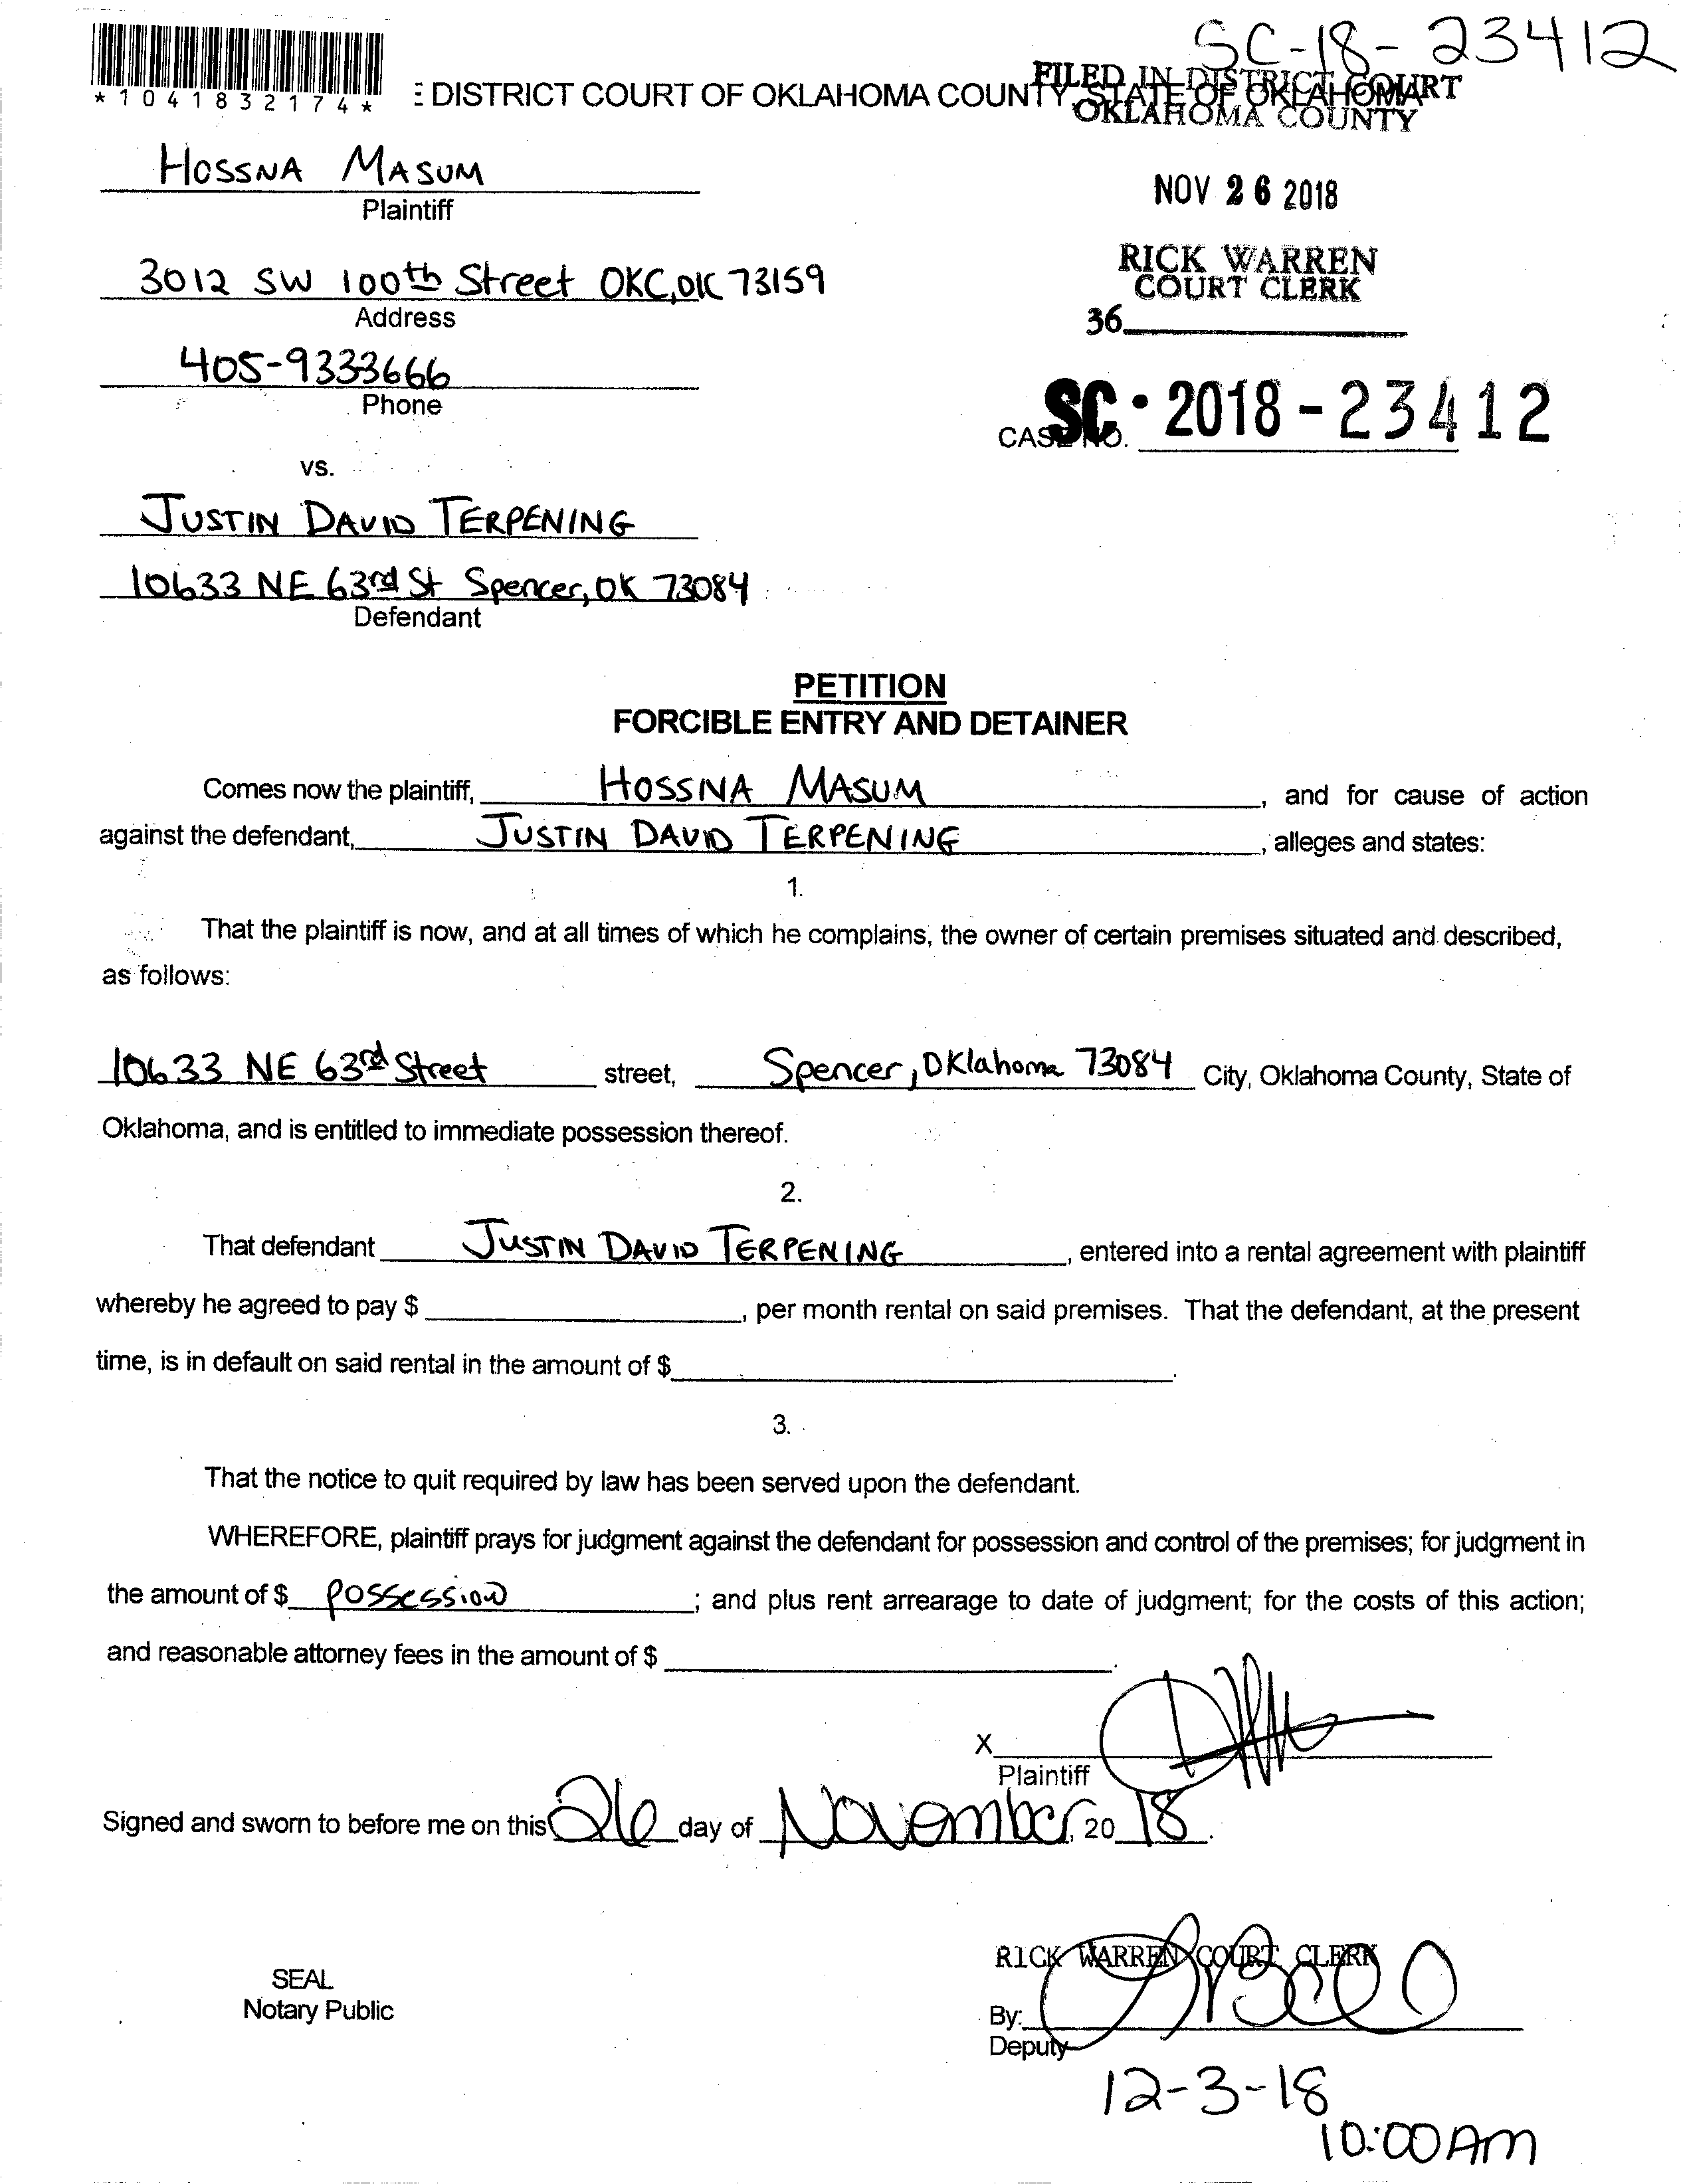 SC-18-23412
*1041832174*
E DISTRICT COURT OF OKLAHOMA COUNTY, STATE OF OKLAHOMA
FILED IN DISTRICT COURT
OKLAHOMA COUNTY
HOSSNA MASUM
Plaintiff
NOV 26 2018
3012 SW 100th Street OKC, OK 73159
Address
RICK WARREN
COURT CLERK
36
405-9333666
Phone
CASE NO. SC-2018-23412
vs.
JUSTIN DAVID TERPENING
10633 NE 63rd St Spencer, OK 73084
Defendant
PETITION
FORCIBLE ENTRY AND DETAINER
Comes now the plaintiff, HOSSNA MASUM, and for cause of action
against the defendant, JUSTIN DAVID TERPENING, alleges and states:
1.
That the plaintiff is now, and at all times of which he complains, the owner of certain premises situated and described,
as follows:
10633 NE 63rd Street street, Spencer, Oklahoma 73084 City, Oklahoma County, State of
Oklahoma, and is entitled to immediate possession thereof.
2.
That defendant JUSTIN DAVID TERPENING, entered into a rental agreement with plaintiff
whereby he agreed to pay $, per month rental on said premises. That the defendant, at the present
time, is in default on said rental in the amount of $.
3.
That the notice to quit required by law has been served upon the defendant.
WHEREFORE, plaintiff prays for judgment against the defendant for possession and control of the premises; for judgment in
the amount of $ POSSESSION; and plus rent arrearage to date of judgment; for the costs of this action;
and reasonable attorney fees in the amount of $.
X
Plaintiff
Signed and sworn to before me on this 26 day of November, 2018.
RICK WARREN COURT CLERK
SEAL
Notary Public
By:
Deputy
12-3-18
10:00AM